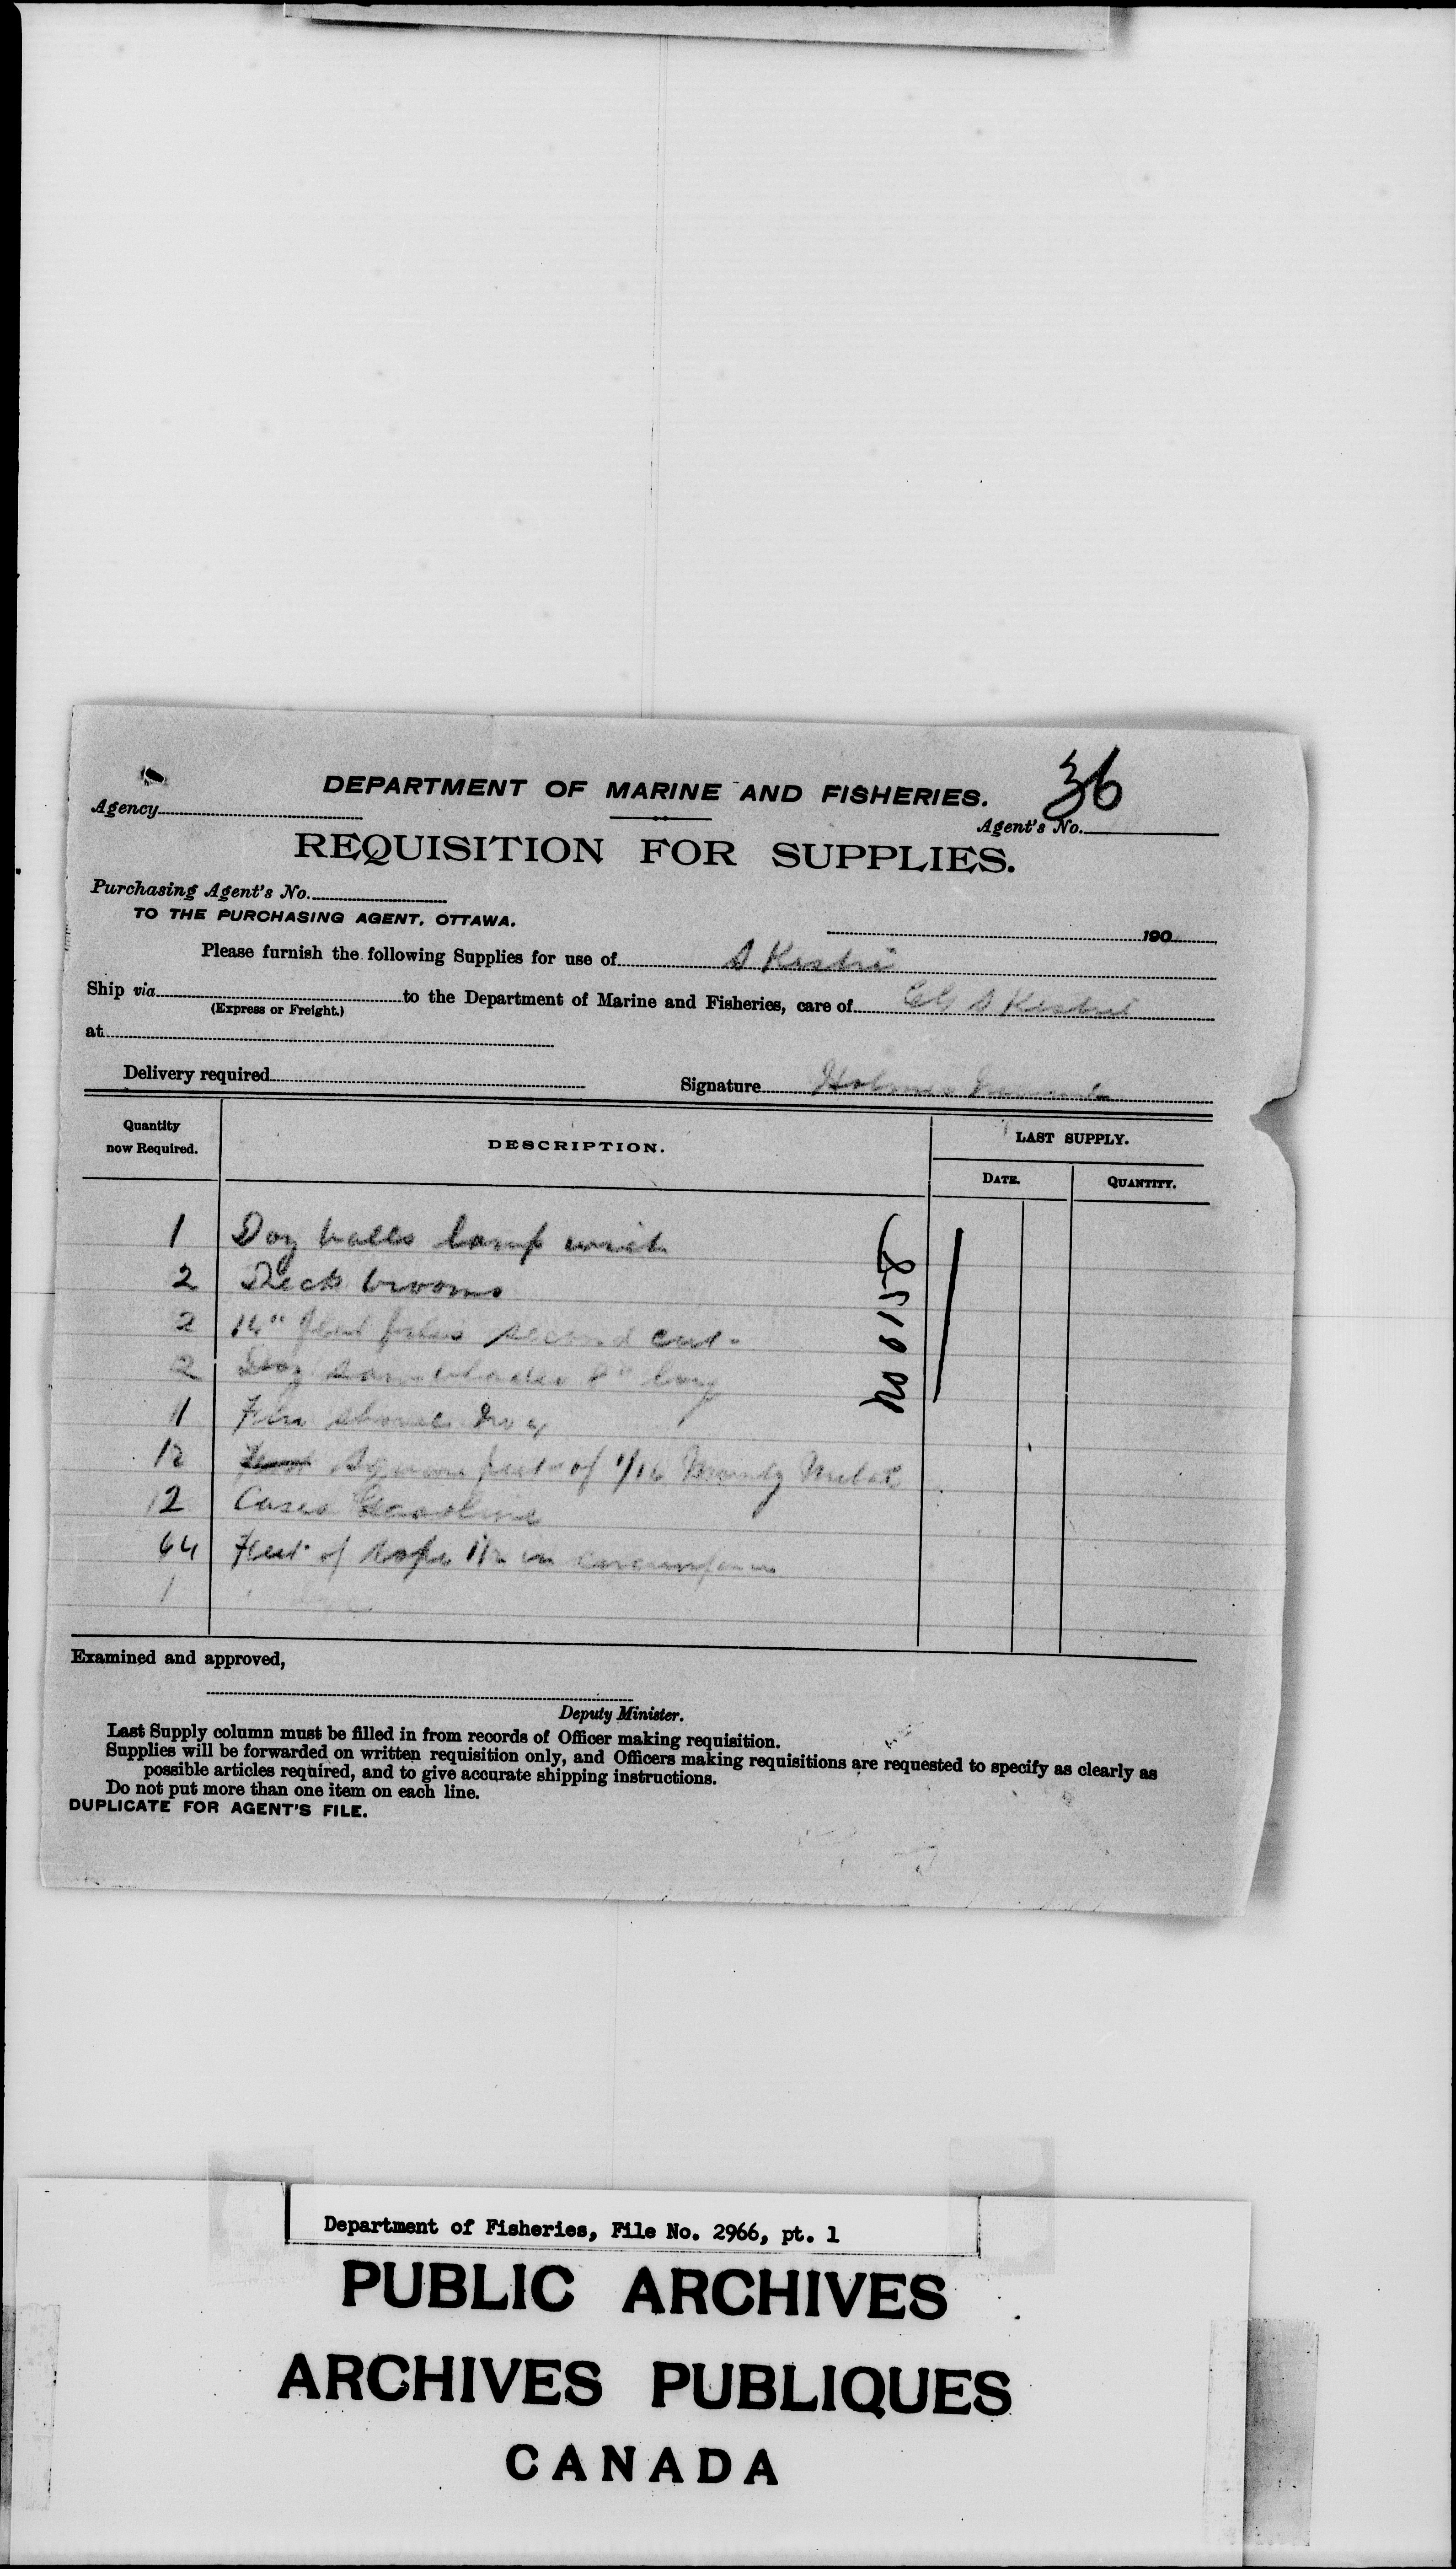 DEPARTMENT OF MARINE AND FISHERIES.
36
Agency
Agent's No.
REQUISITION FOR SUPPLIES.
Purchasing Agent's No.
TO THE PURCHASING AGENT, OTTAWA.
190
Please furnish the following Supplies for use of S Kestre
Ship via to the Department of Marine and Fisheries, care of CGS Kestrel
(Express or Freight.)
at
Delivery required
Signature Holmes Newcomb
Quantity now Required.
DESCRIPTION.
LAST SUPPLY.
DATE.
QUANTITY.
1 Doz balls lamp wick
2 Deck brooms
2 14" flat files second cut
2 Doz saw blades 8" long
1 Fire shovel
12 Square feet of 1/16 Muntz Metal
12 Cases Gasoline
64 Feet of rope in
1
No 0158
Examined and approved,
Deputy Minister.
Last Supply column must be filled in from records of Officer making requisition.
Supplies will be forwarded on written requisition only, and Officers making requisitions are requested to specify as clearly as
possible articles required, and to give accurate shipping instructions.
Do not put more than one item on each line.
DUPLICATE FOR AGENT'S FILE.
Department of Fisheries, File No. 2966, pt. 1
PUBLIC ARCHIVES
ARCHIVES PUBLIQUES
CANADA